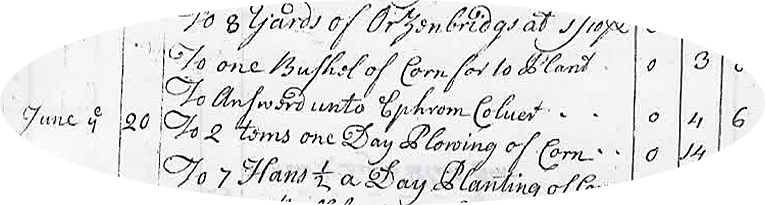 To 8 Yards of Orzenbridgs at 1/10½
To one Bushel of Corn for to Plant 0 3
To Answerd unto Ephrom Coluer 0 4 6
June ye 20 To 2 tems one Day Plowing of Corn 0 14
To 7 Hans ½ a Day Planting of Co